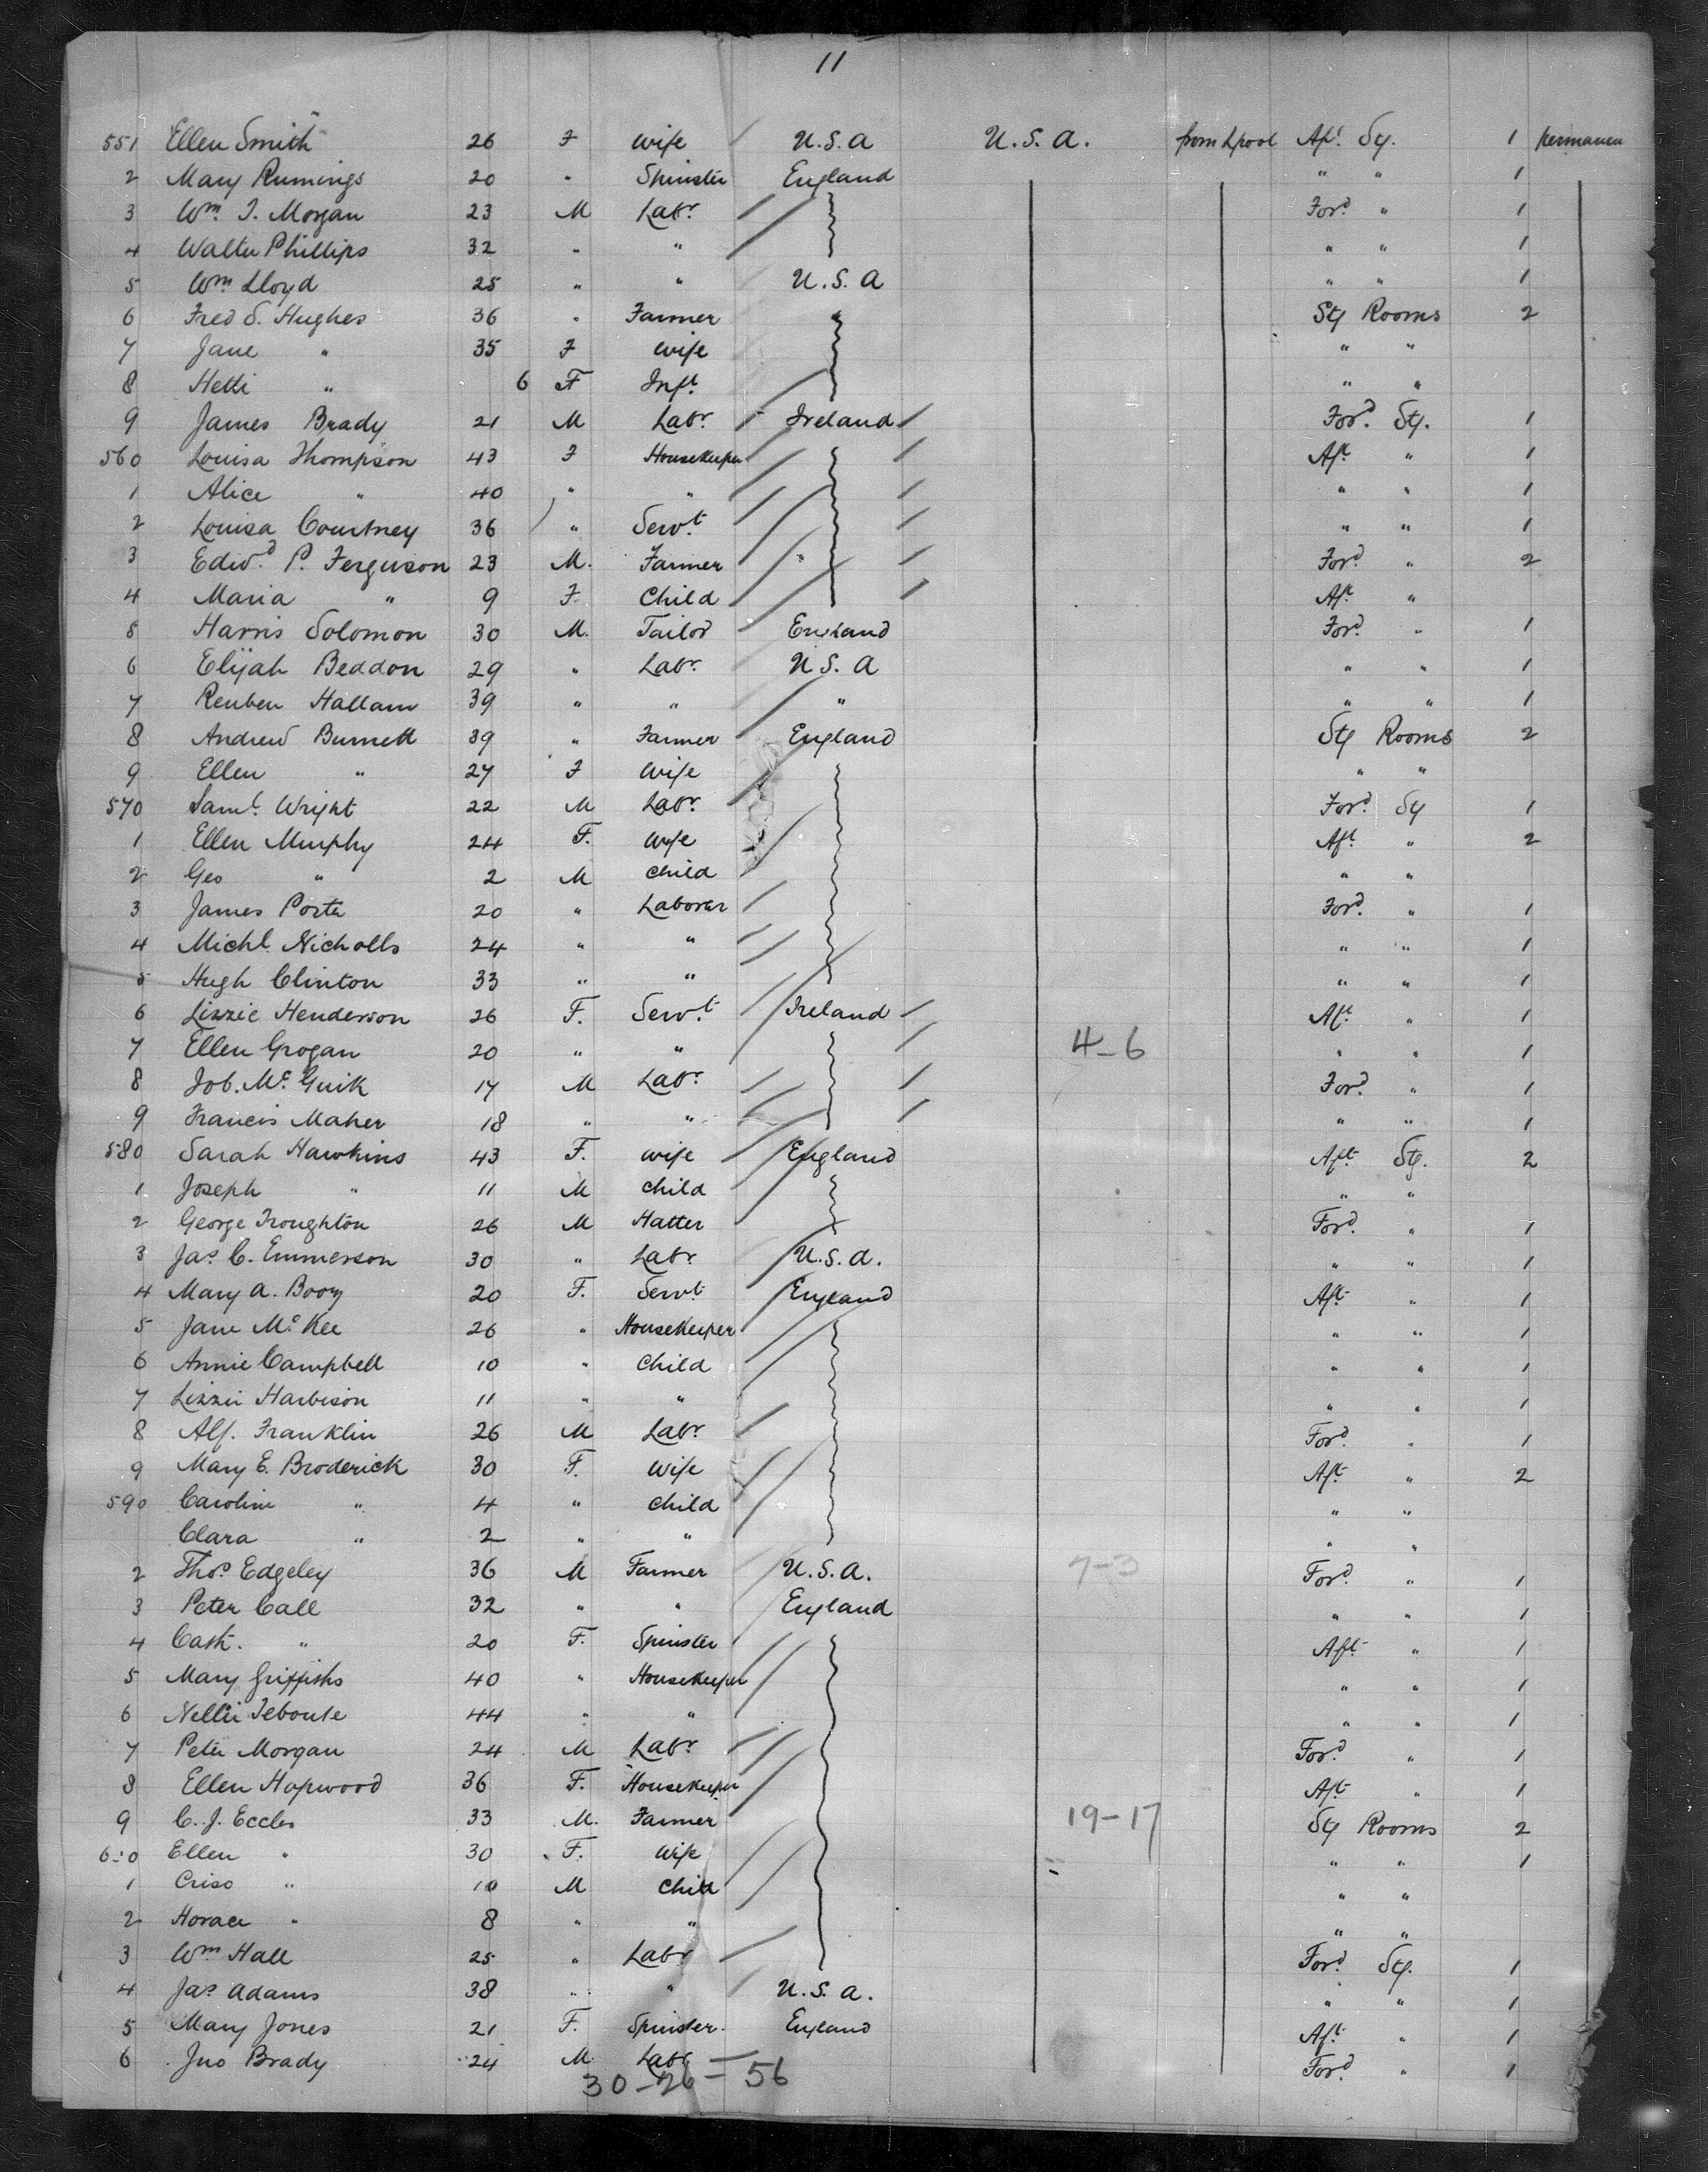 11
551 Ellen Smith 26 F Wife U.S.A U.S.A. from Lpool Aft Stg. 1 permanen
2 Mary Rumings 20 " Spinster England " " 1
3 Wm. T. Morgan 23 M Labr. Ford " 1
4 Walter Phillips 32 " " " " 1
5 Wm Lloyd 25 " " U.S.A " " 1
6 Fred S. Hughes 36 " Farmer " Stg Rooms 2
7 Jane " 35 F Wife " "
8 Hetti " 6 F Inft. " "
9 James Brady 21 M Labr. Ireland Ford. Stg. 1
560 Louisa Thompson 43 F Housekeeper Aft " 1
1 Alice " 40 " " " " 1
2 Louisa Courtney 36 " Servt " " 1
3 Edwd. P. Ferguson 23 M. Farmer " Ford " 2
4 Maria " 9 F Child Aft "
5 Harris Solomon 30 M. Tailor England Ford. " 1
6 Elijah Beddon 29 " Labr. U.S.A " " 1
7 Reuben Hallam 39 " " " " " 1
8 Andrew Burnett 39 " Farmer England Stg Rooms 2
9 Ellen " 27 F Wife " "
570 Saml. Wright 22 M Labr. Ford. Stg 1
1 Ellen Murphy 24 F. Wife Aft " 2
2 Geo " 2 M Child " "
3 James Porte 20 " Laborer Ford. " 1
4 Michl. Nicholls 24 " " " " 1
5 Hugh Clinton 33 " " " " 1
6 Lizzie Henderson 26 F. Servt Ireland Aft " 1
7 Ellen Grogan 20 " " 4-6 " " 1
8 Job. Mc Guik 17 M Labr. Ford " 1
9 Francis Maher 18 " " " " 1
580 Sarah Hawkins 43 F. Wife England Aft Stg. 2
1 Joseph " 11 M Child " "
2 George Troughton 26 M Hatter Ford. " 1
3 Jas. C. Emmerson 30 " Labr. U.S.A. " " 1
4 Mary A. Booy 20 F. Servt England Aft " 1
5 Jane Mc Kee 26 " Housekeeper " " 1
6 Annie Campbell 10 " Child " " 1
7 Lizzie Harbison 11 " " " " 1
8 Alf. Franklin 26 M Labr. Ford. " 1
9 Mary E. Broderick 30 F. Wife Aft " 2
590 Caroline " 4 " Child " "
Clara " 2 " " " "
2 Thos. Edgeley 36 M Farmer U.S.A. 7-3 Ford. " 1
3 Peter Call 32 " " England " " 1
4 Cath. " 20 F. Spinster Aft " 1
5 Mary Griffiths 40 " Housekeeper " " 1
6 Nellie Teboute 44 " " " " 1
7 Peter Morgan 24 M Labr. Ford. " 1
8 Ellen Hopwood 36 F. Housekeeper Aft " 1
9 C. J. Eccles 33 M. Farmer 19-17 Stg Rooms 2
600 Ellen " 30 F. Wife " " 1
1 Criso " 10 M Child " "
2 Horace " 8 " " " "
3 Wm Hall 25 " Labr Ford. Stg. 1
4 Jas. Adams 38 " " U.S.A. " " 1
5 Mary Jones 21 F. Spinster. England Aft " 1
6 Jno Brady 24 M Labr Ford. " 1
30-26=56